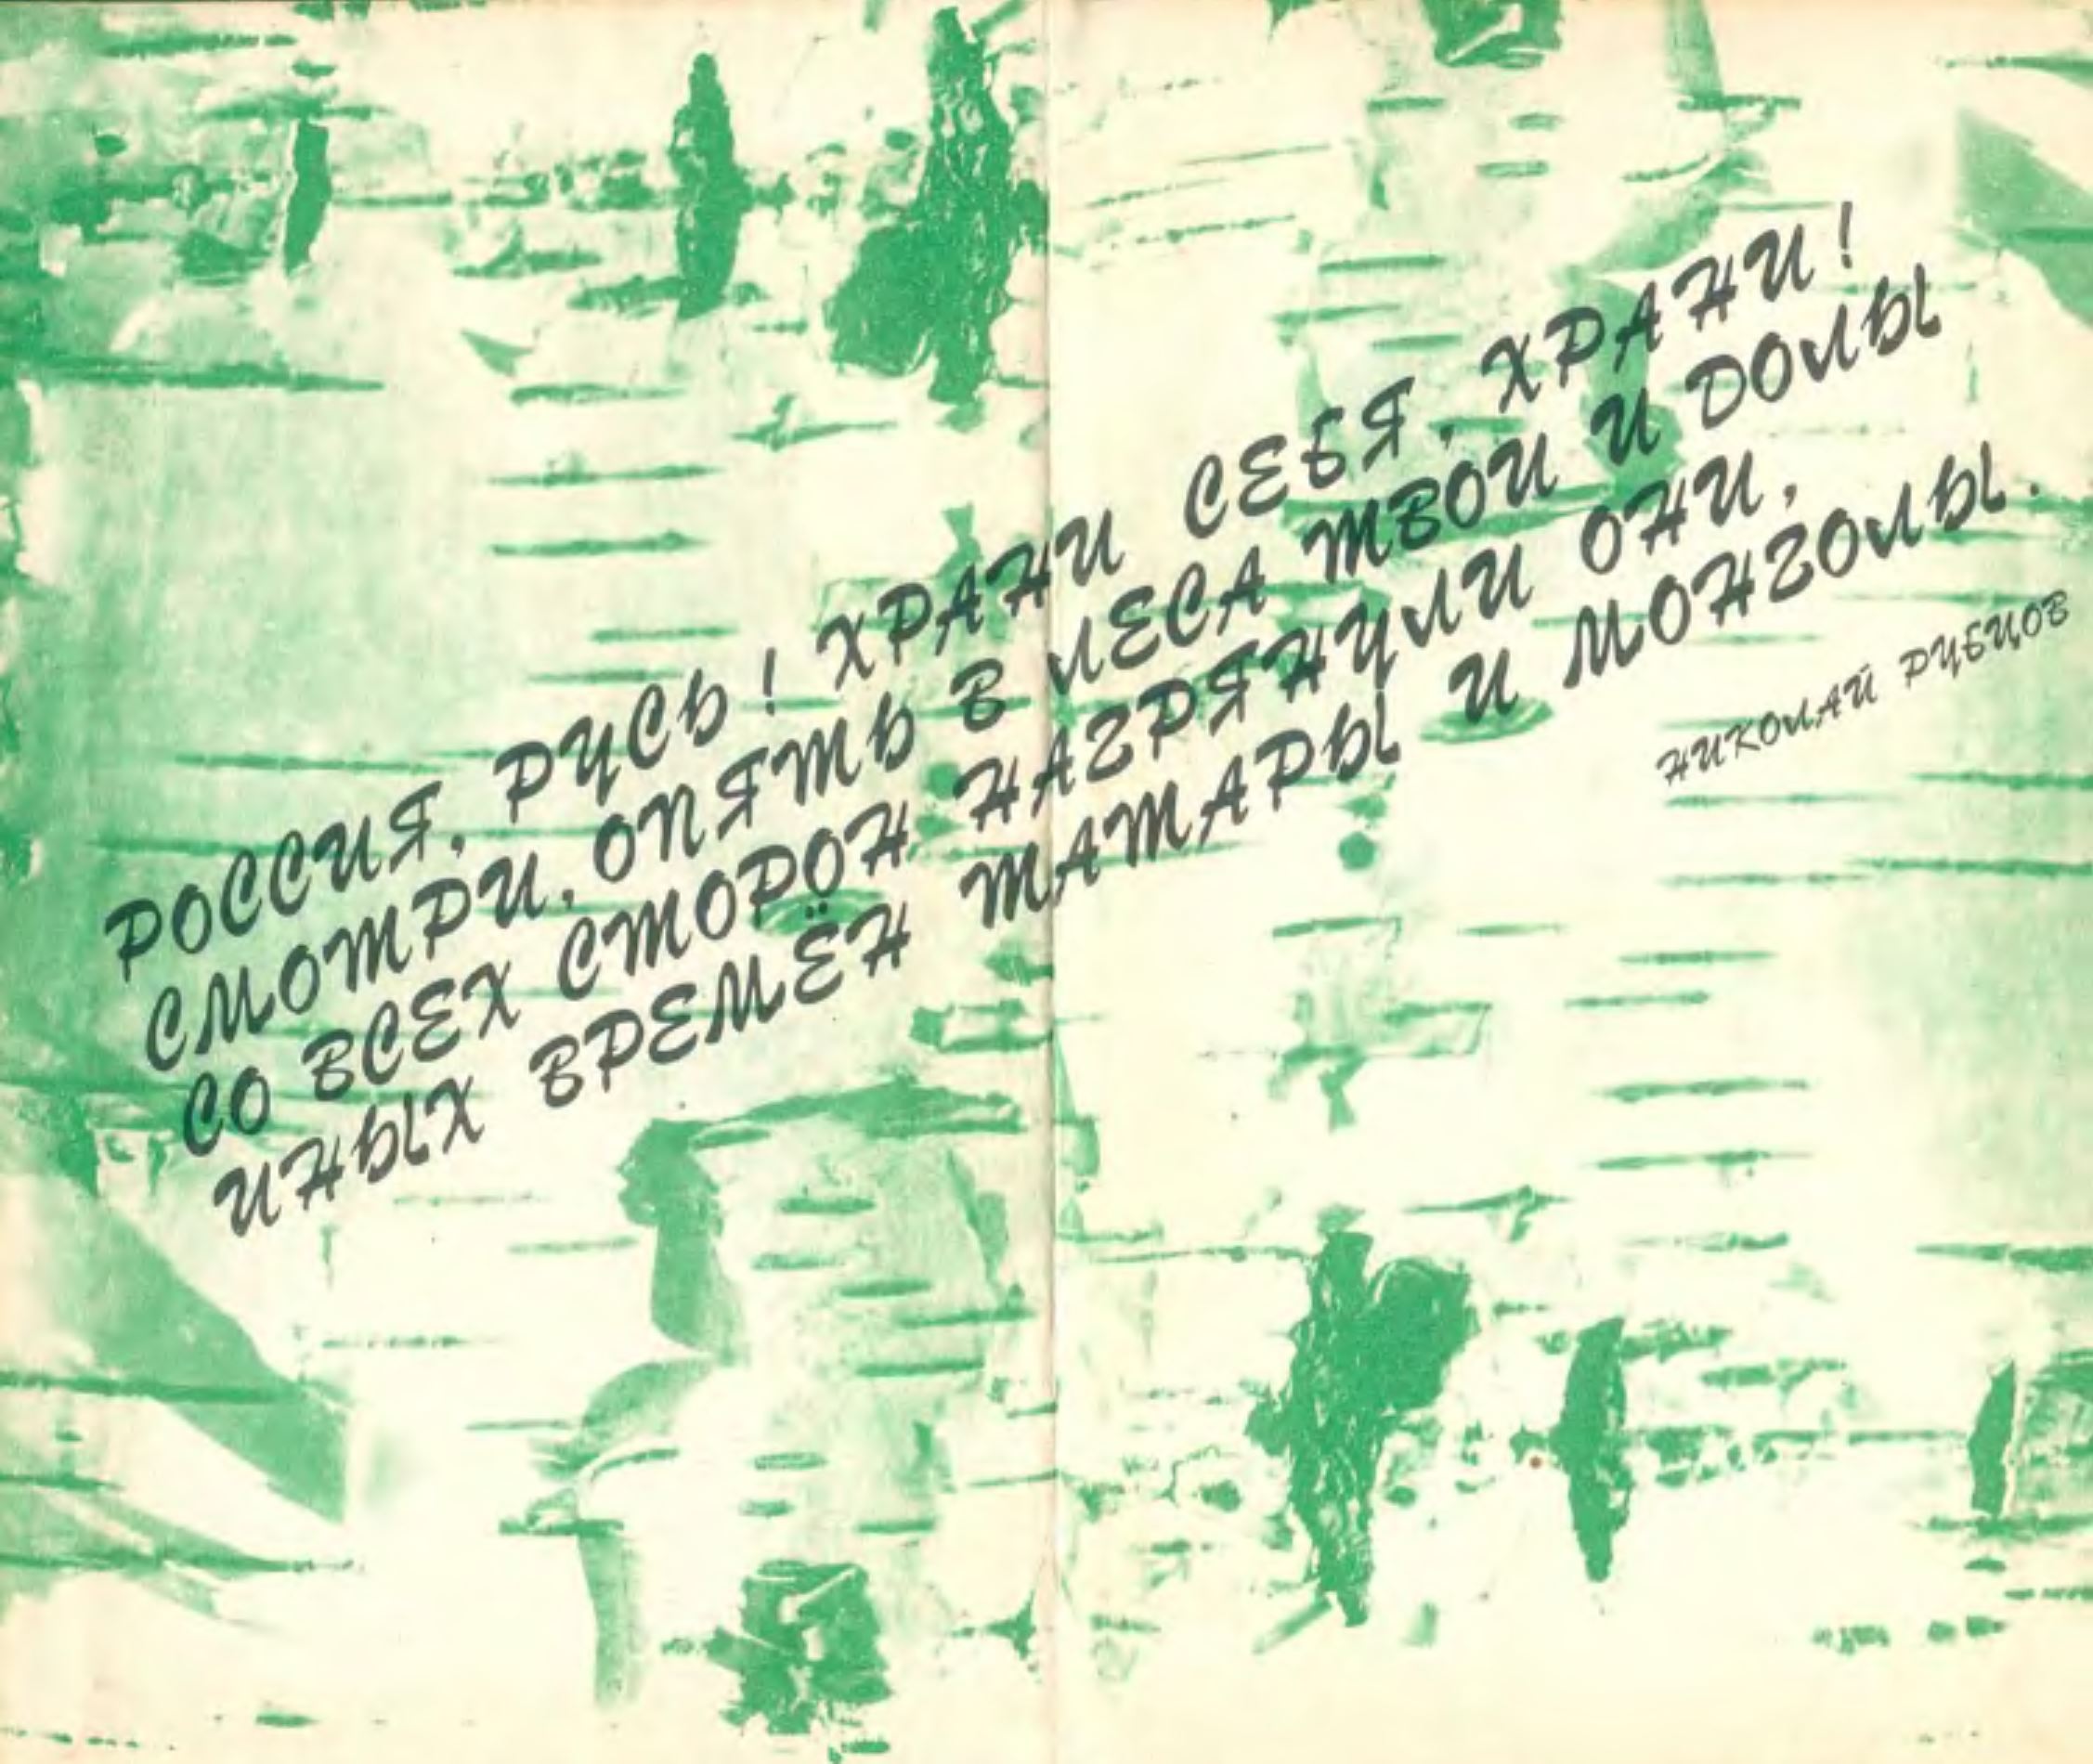 РОССИЯ, РУСЬ! ХРАНИ СЕБЯ, ХРАНИ!
СМОТРИ, ОПЯТЬ В ЛЕСА ТВОИ И ДОЛЫ
СО ВСЕХ СТОРОН НАГРЯНУЛИ ОНИ,
ИНЫХ ВРЕМЁН ТАТАРЫ И МОНГОЛЫ.
НИКОЛАЙ РУБЦОВ